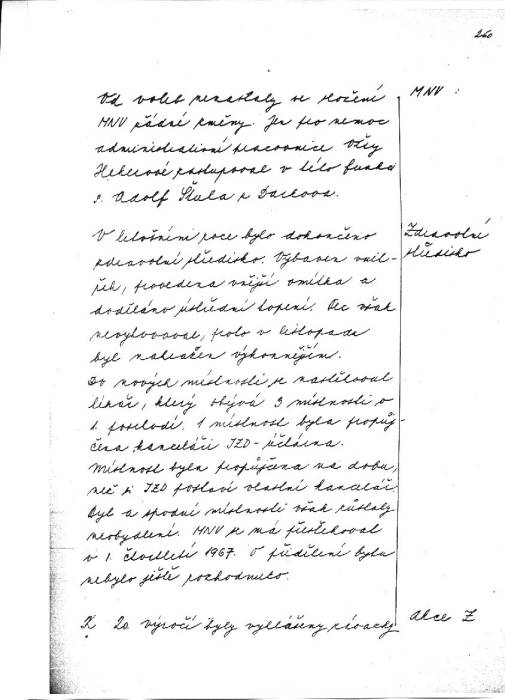 260
Od voleb nenastaly ve složení
MNV :
MNV žádné změny. Jen pro nemoc
administrativní pracovnice Věry
Hekerové zastupoval v této funkci
s. Adolf Škula z
V letošním roce bylo dokončeno
Zdravotní
středisko
zdravotní středisko. Vybaven vnit-
řek, provedena vnější omítka a
doděláno ústřední topení. Pec však
nevyhovovala, proto v listopadu
byl nahražen výkonnějším.
Do nových místností se nastěhoval
lékař, který obývá 3 místnosti v
1. poschodí. 1 místnost byla propůj-
čena kanceláři JZD - účtárna.
Místnost byla propůjčena na dobu,
než si JZD postaví vlastní kancelář.
Byt a spodní místnosti však zůstaly
neobydlení. MNV se má přestěhovat
v 1. čtvrtletí 1967. O přidělení bytu
nebylo ještě rozhodnuto.
K 20 výročí byly vyhlášeny závazky
Akce Z